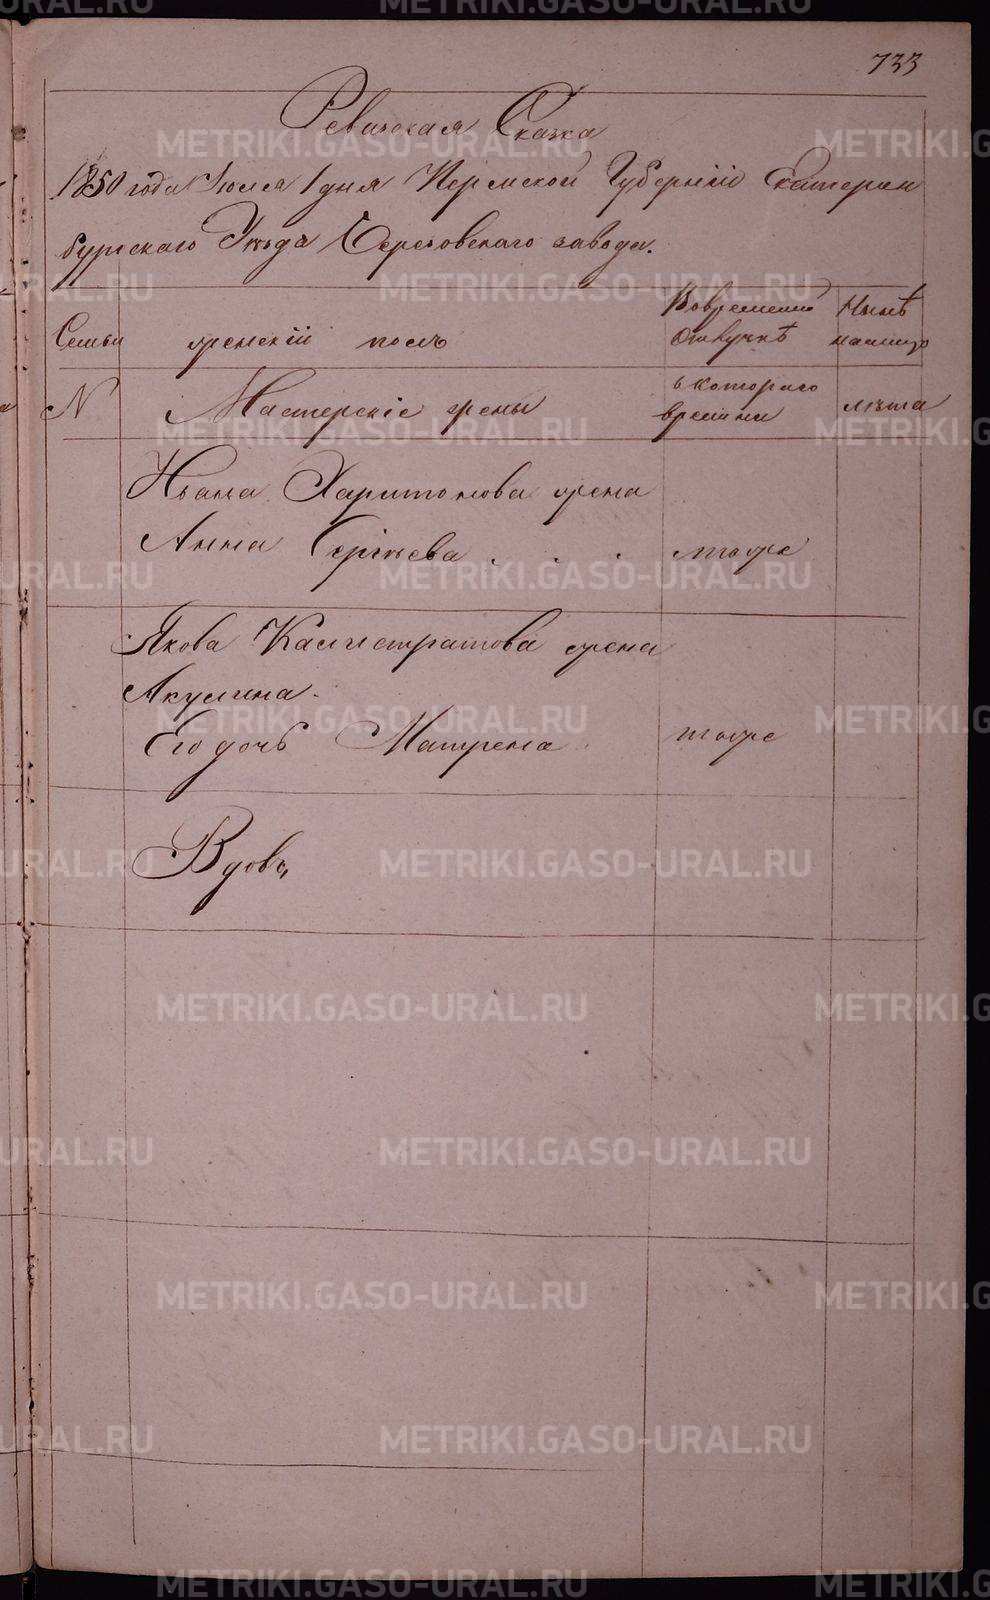 733
Ревизская Сказка
1850 года Iюля 1 дня Пермской Губернiи Екатерин
бургскаго Уѣзда Березовскаго завода.
Семьи
женскiй полъ
Во временной
отлучкѣ
Нынѣ
налицо
N
Мастерскiе жены
с котораго
времени
лѣта
Ивана Харитонова жена
Анна Сергѣева . . . тоже
Якова Калистратова жена
Акулина.
Его дочь Матрена тоже
Вдовы
METRIKI.GASO-URAL.RU